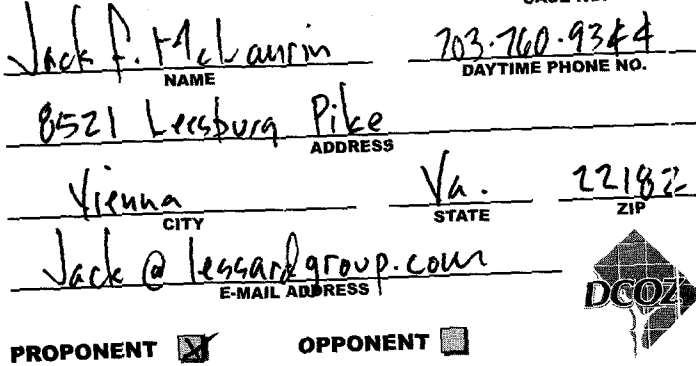 Jack F. McLaurin 703.760.9344
NAME DAYTIME PHONE NO.
8521 Leesburg Pike
ADDRESS
Vienna Va. 22182
CITY STATE ZIP
Jack @ lessardgroup.com
E-MAIL ADDRESS
DCOZ
PROPONENT OPPONENT